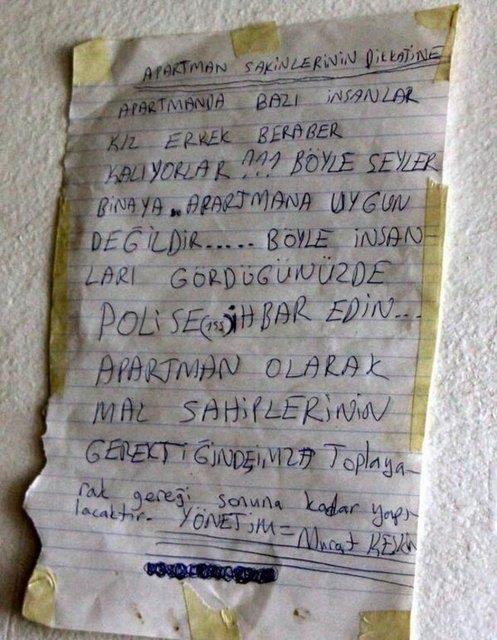 APARTMAN SAKİNLERİNİN DİKKATİNE
APARTMANDA BAZI İNSANLAR
KIZ ERKEK BERABER
KALIYORLAR !!! BÖYLE ŞEYLER
BİNAYA .. APARTMANA UYGUN
DEĞİLDİR..... BÖYLE İNSAN-
LARI GÖRDÜĞÜNÜZDE
POLİSE (155) İHBAR EDİN...
APARTMAN OLARAK
MAL SAHİPLERİNİN
GEREKTİĞİNDE İMZA Toplaya-
rak gereği sonuna kadar yapı-
lacaktır. YÖNETİM = Murat KESKİN